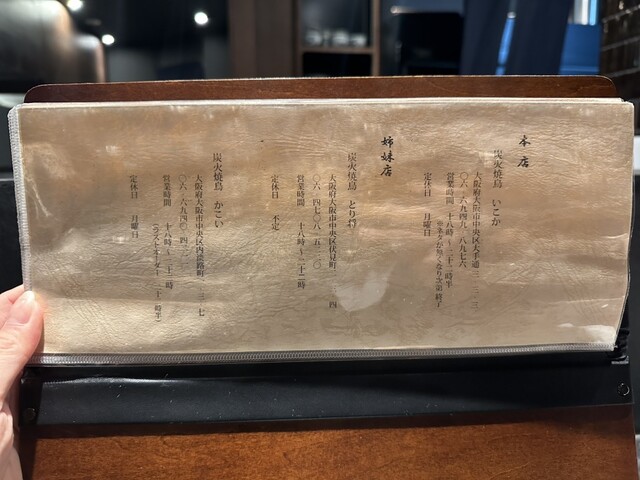 本店
炭火焼鳥 いこか
大阪府大阪市中央区大手通
〇六‐六九四九‐八九七六
営業時間 十八時~二十二時半
定休日 月曜日
姉妹店
炭火焼鳥 とり将
大阪府大阪市中央区伏見町
営業時間 十八時~二十二時
定休日 不定
炭火焼鳥 かこい
大阪府大阪市中央区内淡路町
営業時間 十八時~二十三時
定休日 月曜日